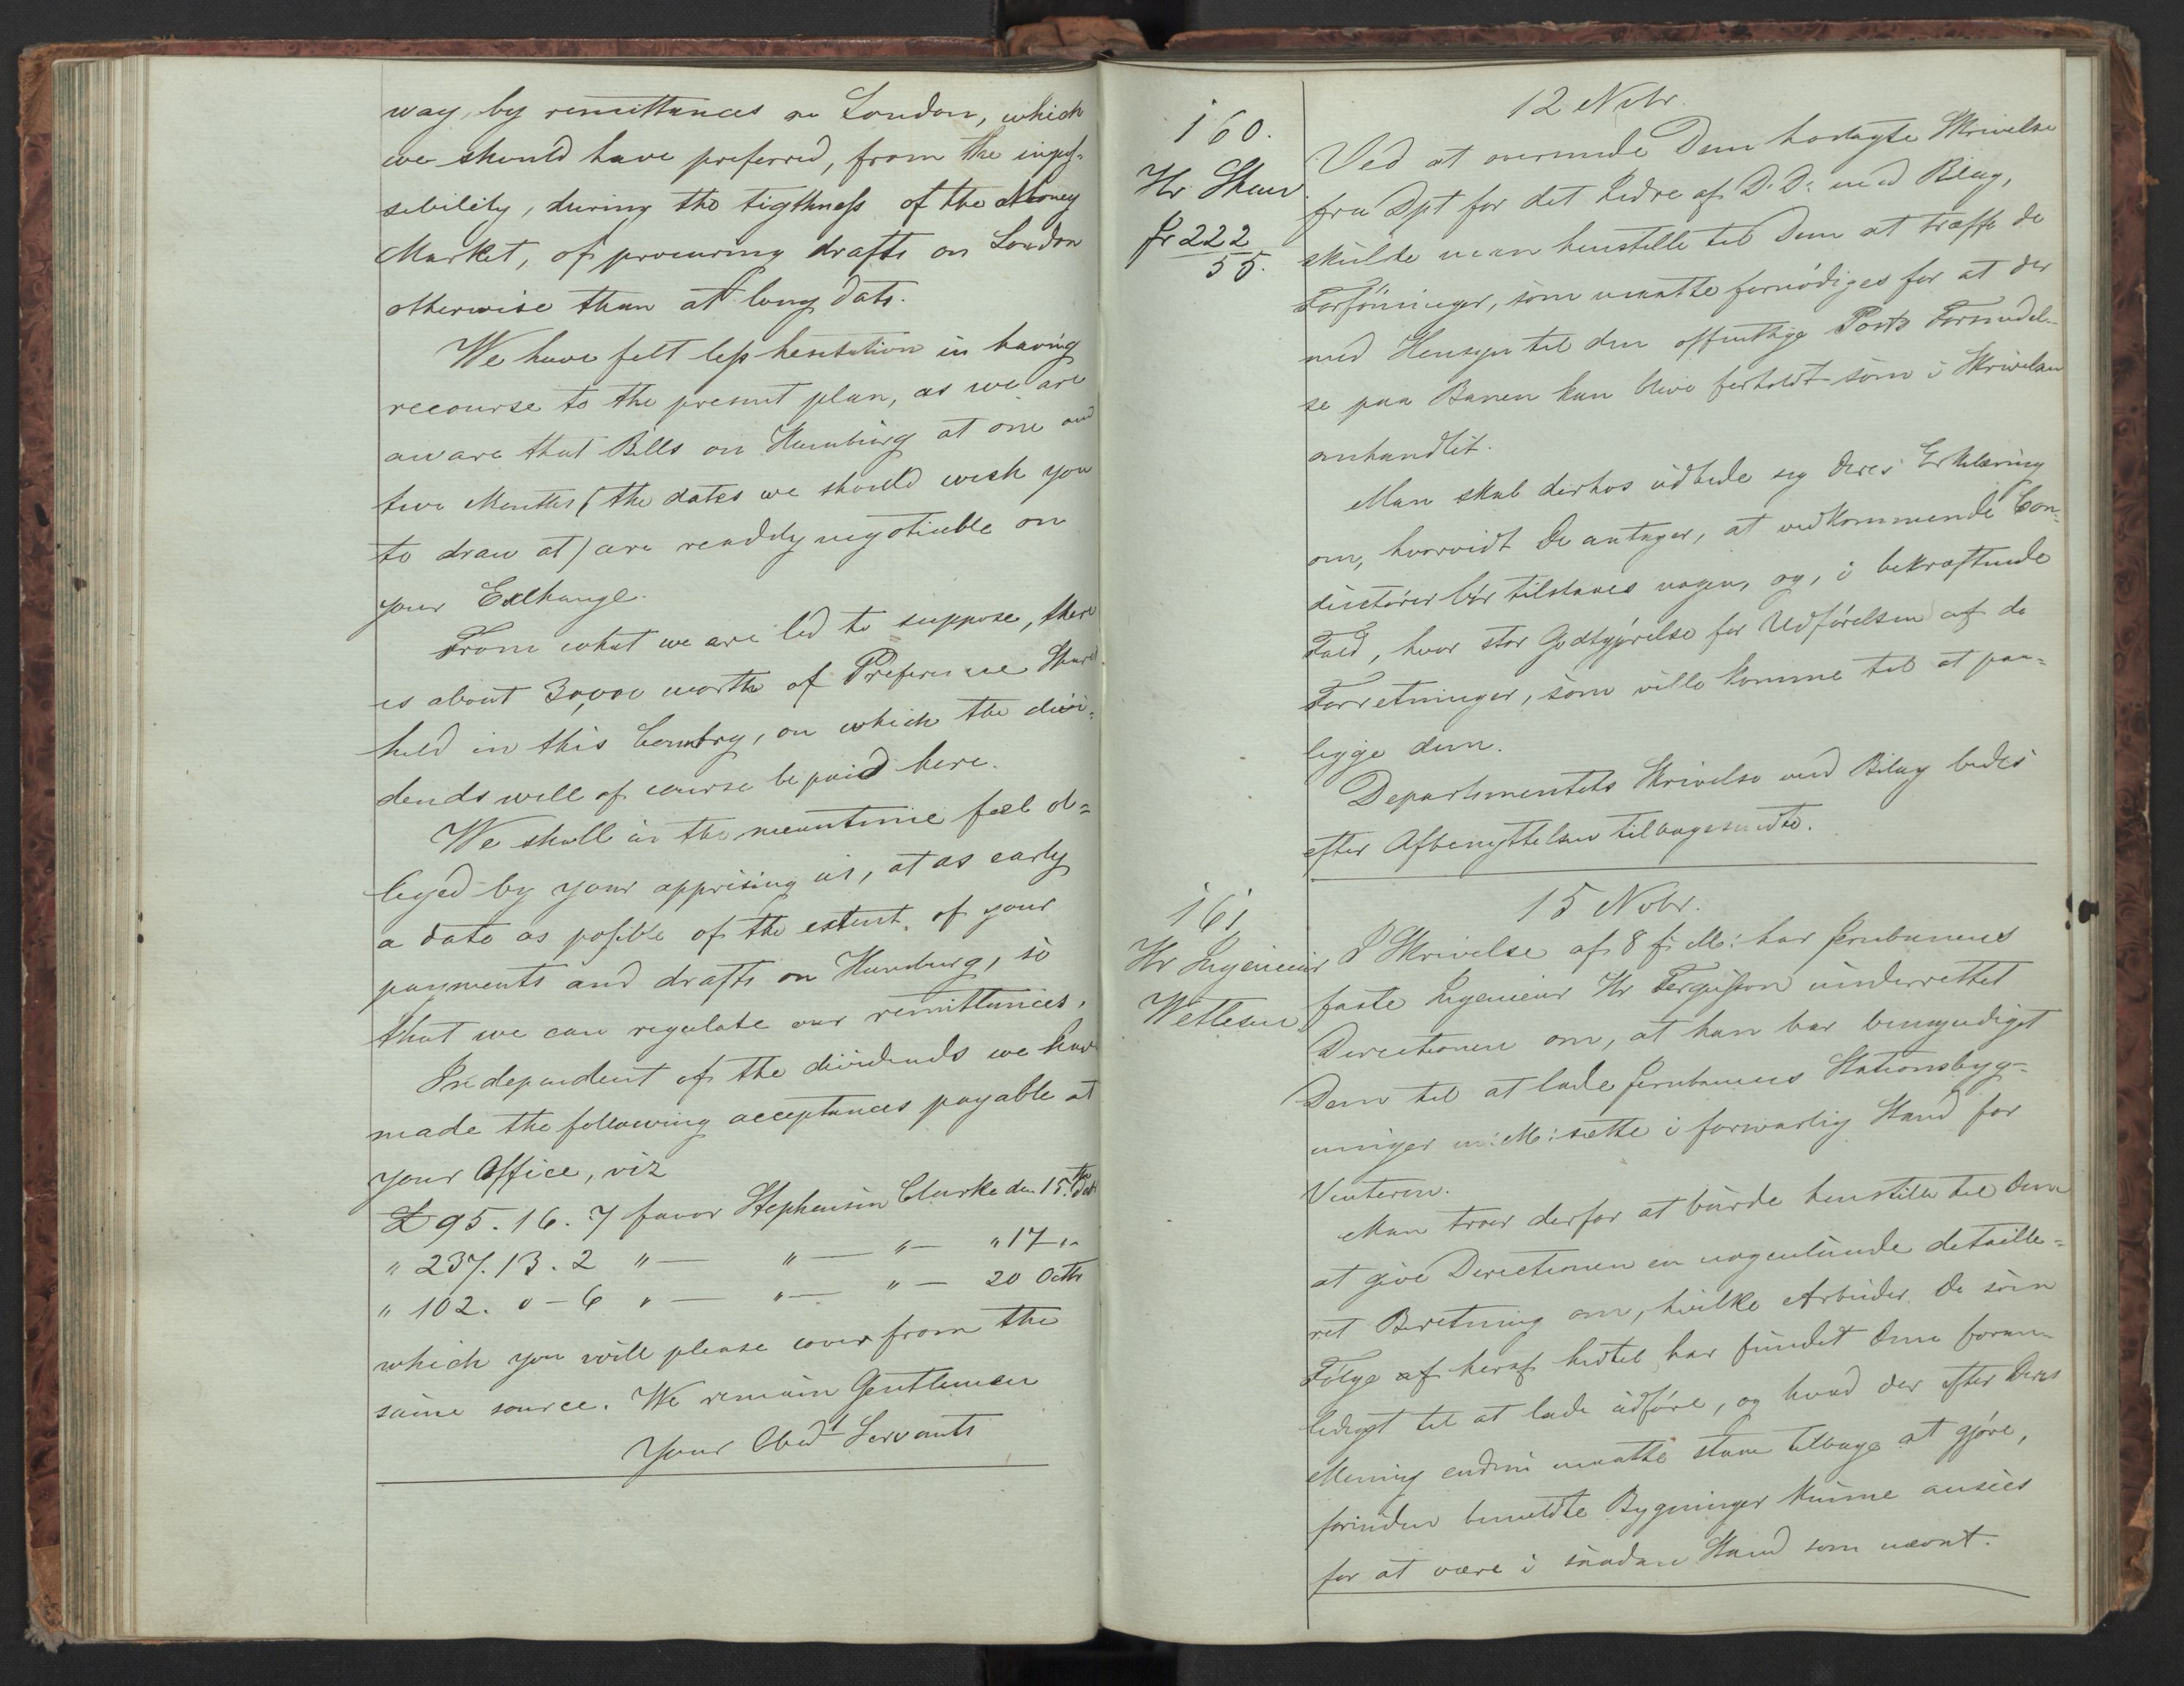 way, by remittances on London, which
we should have preferred, from the impos-
sebility, during the tigthness of the Money
Market, of procuring drafts on London
otherwise than at long date.
We have felt less hesitation in having
recourse to the present plan, as we are
aware that Bills on Hamburg at one and
two Months (the dates we should wish you
to draw at) are readily negotiable on
your Exchange.
From what we are led to suppose, there
is about 30,000 worth of Preference Shares
held in this Country, on which the divi-
dends will of course be paid here.
We shall in the meantime feel ob-
liged by your apprising us, at as early
a date as possible of the extent of your
payments and drafts on Hamburg, so
that we can regulate our remittances.
Independent of the dividends we have
made the following acceptances payable at
your Office, viz
£ 95. 16. 7 favor Stephenson Clarke due 15th
" 237. 13. 2 " — " — " — " 17 "
" 102. 0 - 6 " — " — " — 20 Octb
which you will please cover from the
same source. We remain Gentlemen
Your Obedt Servants
160.
Hr Shaw
fr 222
55.
12 Nvbr.
Ved at oversende Dem hoslagte Skrivelse
fra Dpt for det Indre af D. D. med Bilag,
skulde man henstille til Dem at træffe de
Forføininger, som maatte fornødiges for at der
med Hensyn til den offentlige Posts Formidel-
se paa Banen kan blive forholdt som i Skrivelsen
omhandlet.
Man skal derhos udbede sig Deres Erklæring
om, hvorvidt De antager, at vedkommende Con-
ducteurer bør tilstaaes nogen, og, i bekræftende
Fald, hvor stor Godtgjørelse for Udførelsen af de
Forretninger, som ville komme til at paa-
ligge dem.
Departementets Skrivelse med Bilag bedes
efter Afbenyttelsen tilbagesendte.
161
Hr Ingenieur
Wetlesen
15 Novbr.
I Skrivelse af 8 f: M: har Jernbanens
faste Ingenieur Hr Fergusson underrettet
Directionen om, at han har bemyndiget
Dem til at lade Jernbanens Stationsbyg-
ninger m: M: sætte i forsvarlig Stand for
Vinteren.
Man troer derfor at burde henstille til Dem
at give Directionen en nogenlunde detaille-
ret Beretning om, hvilke Arbeider De som
Følge af heraf hidtil har fundet Dem foran-
lediget til at lade udføre, og hvad der efter Deres
Mening endnu maatte staae tilbage at gjøre,
forinden bemeldte Bygninger kunne ansees
for at være i saadan Stand som nævnt.